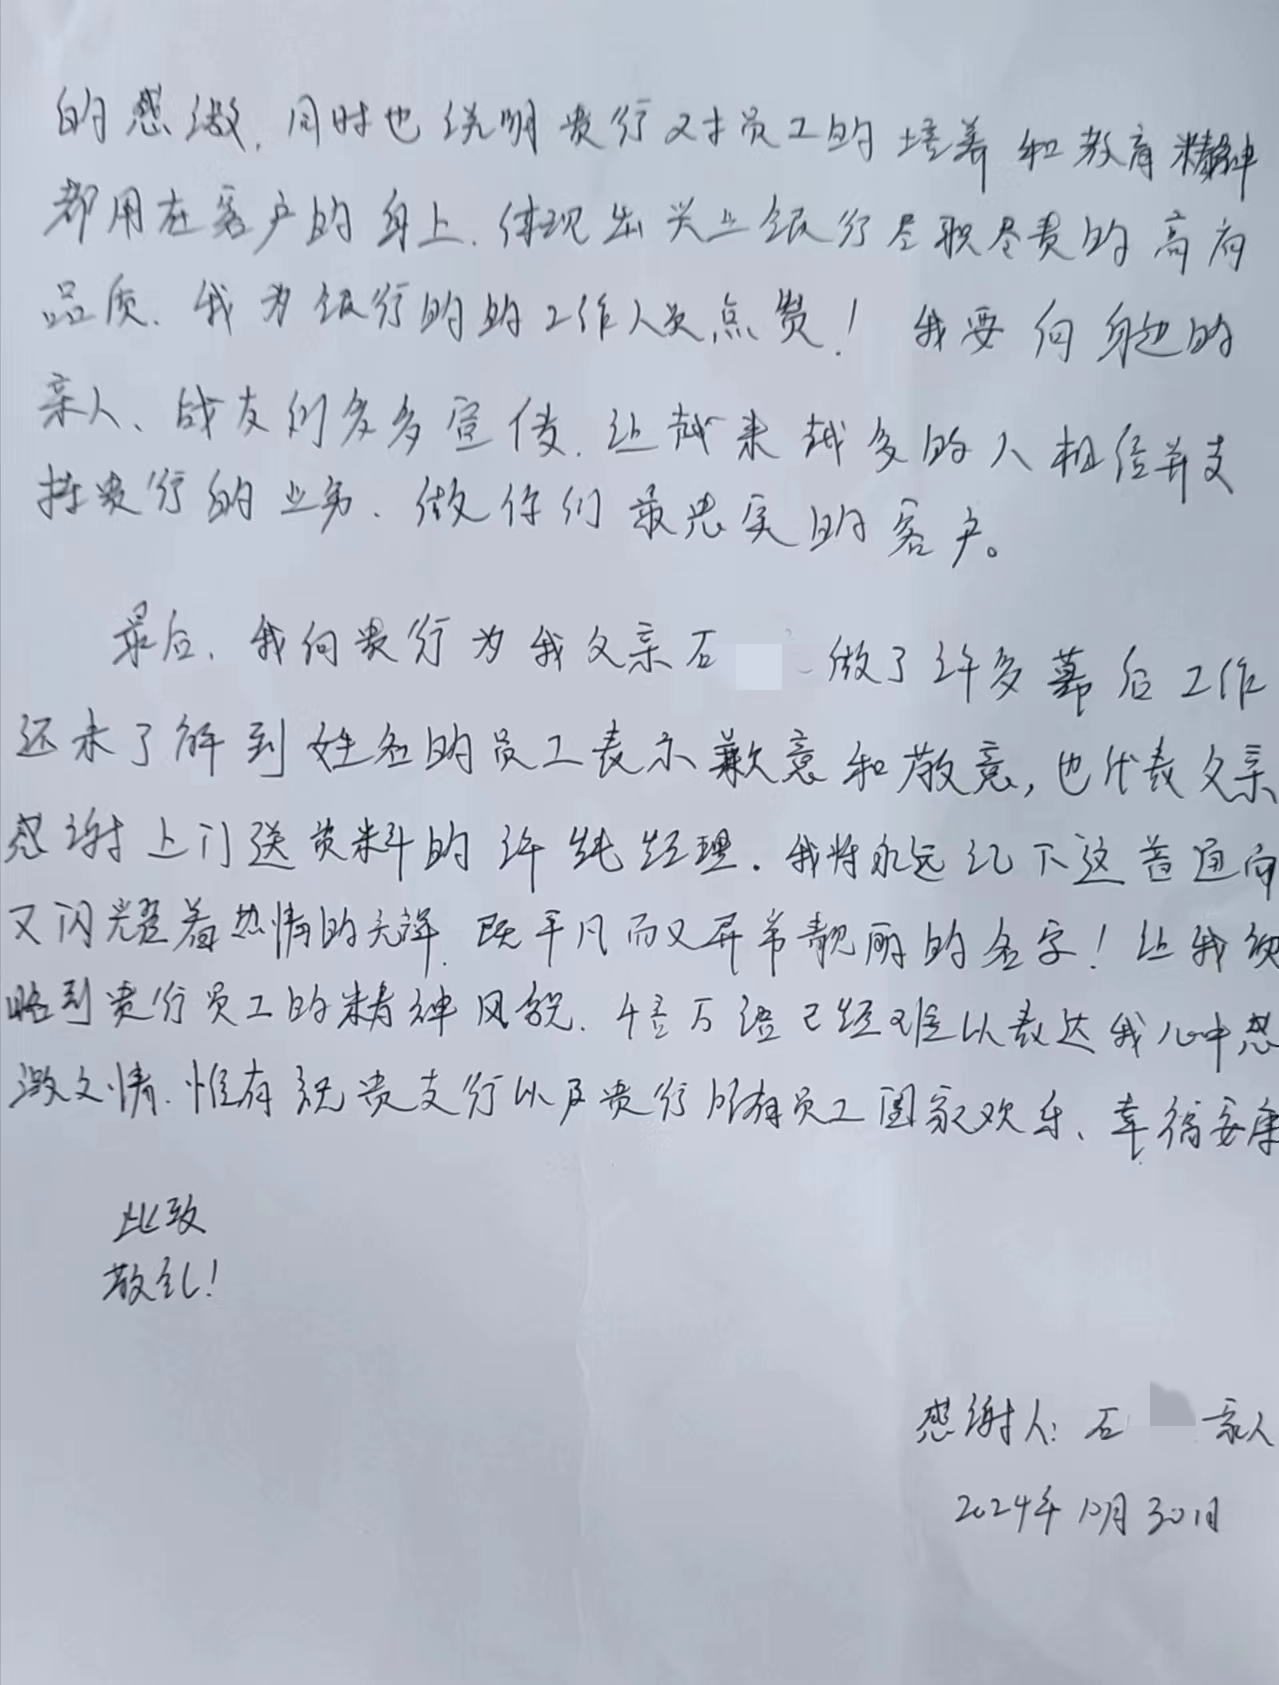 的感激,同时也说明贵行对员工的培养和教育精神
都用在客户的身上.体现出兴业银行尽职尽责的高尚
品质.我为银行的的工作人员点赞！我要向身边的
亲人、战友们多多宣传.让越来越多的人相信并支
持贵行的业务.做你们最忠实的客户。
最后.我向贵行为我父亲石 做了许多幕后工作
还未了解到姓名的员工表示歉意和敬意,也代表父亲
感谢上门送资料的许纯经理.我将永远记下这普通而
又闪耀着热情的光辉.既平凡而又异常靓丽的名字！让我领
略到贵行员工的精神风貌.千言万语已经难以表达我心中感
激之情.惟有祝贵支行以及贵行所有员工阖家欢乐、幸福安康
此致
敬礼！
感谢人:石 家人
2024年10月30日